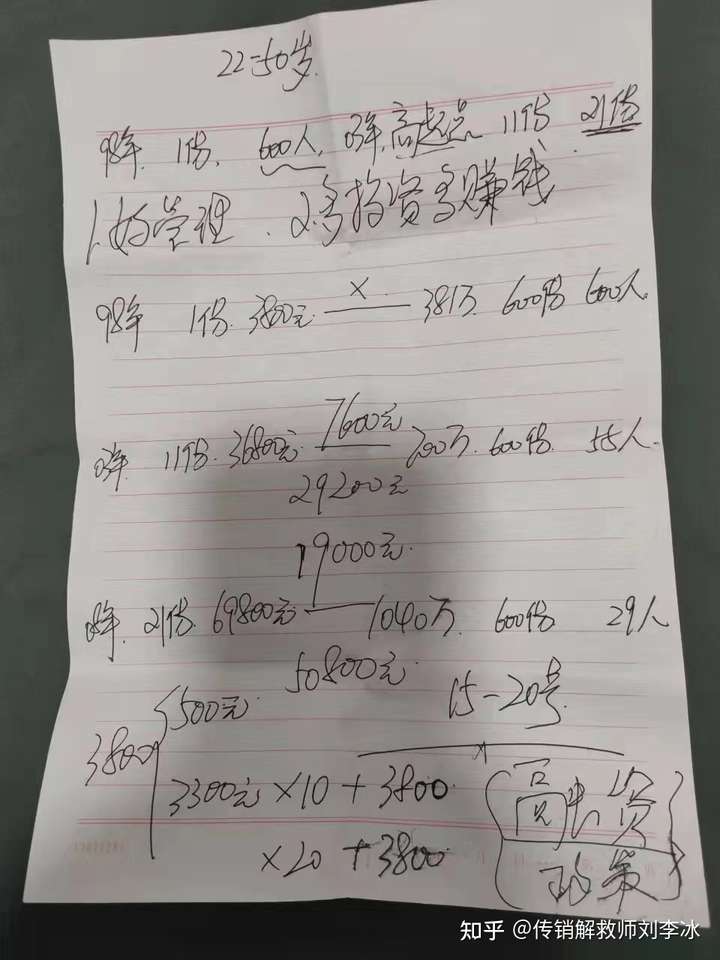 22-50岁.
98年. 1份. 600人. 03年. 高起点 11份 21份
1.好管理. 2.多投资多赚钱
98年 1份. 3800元. × 381万. 600份 600人.
7600元
03年. 11份. 36800元. 700万. 600份. 55人.
29200元
19000元.
08年. 21份. 69800元 1040万. 600份 29人
50800元
500元. 15-20号.
3800
3300元×10+3800 ×
×20 +3800